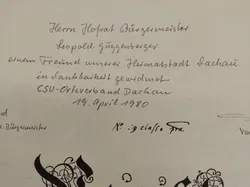 Herrn Hofrat Bürgermeister
Leopold Guggenberger
einem Freund unserer Heimatstadt Dachau
in Dankbarkeit gewidmet
CSU-Ortsverband Dachau
19. April 1980
Bürgermeister